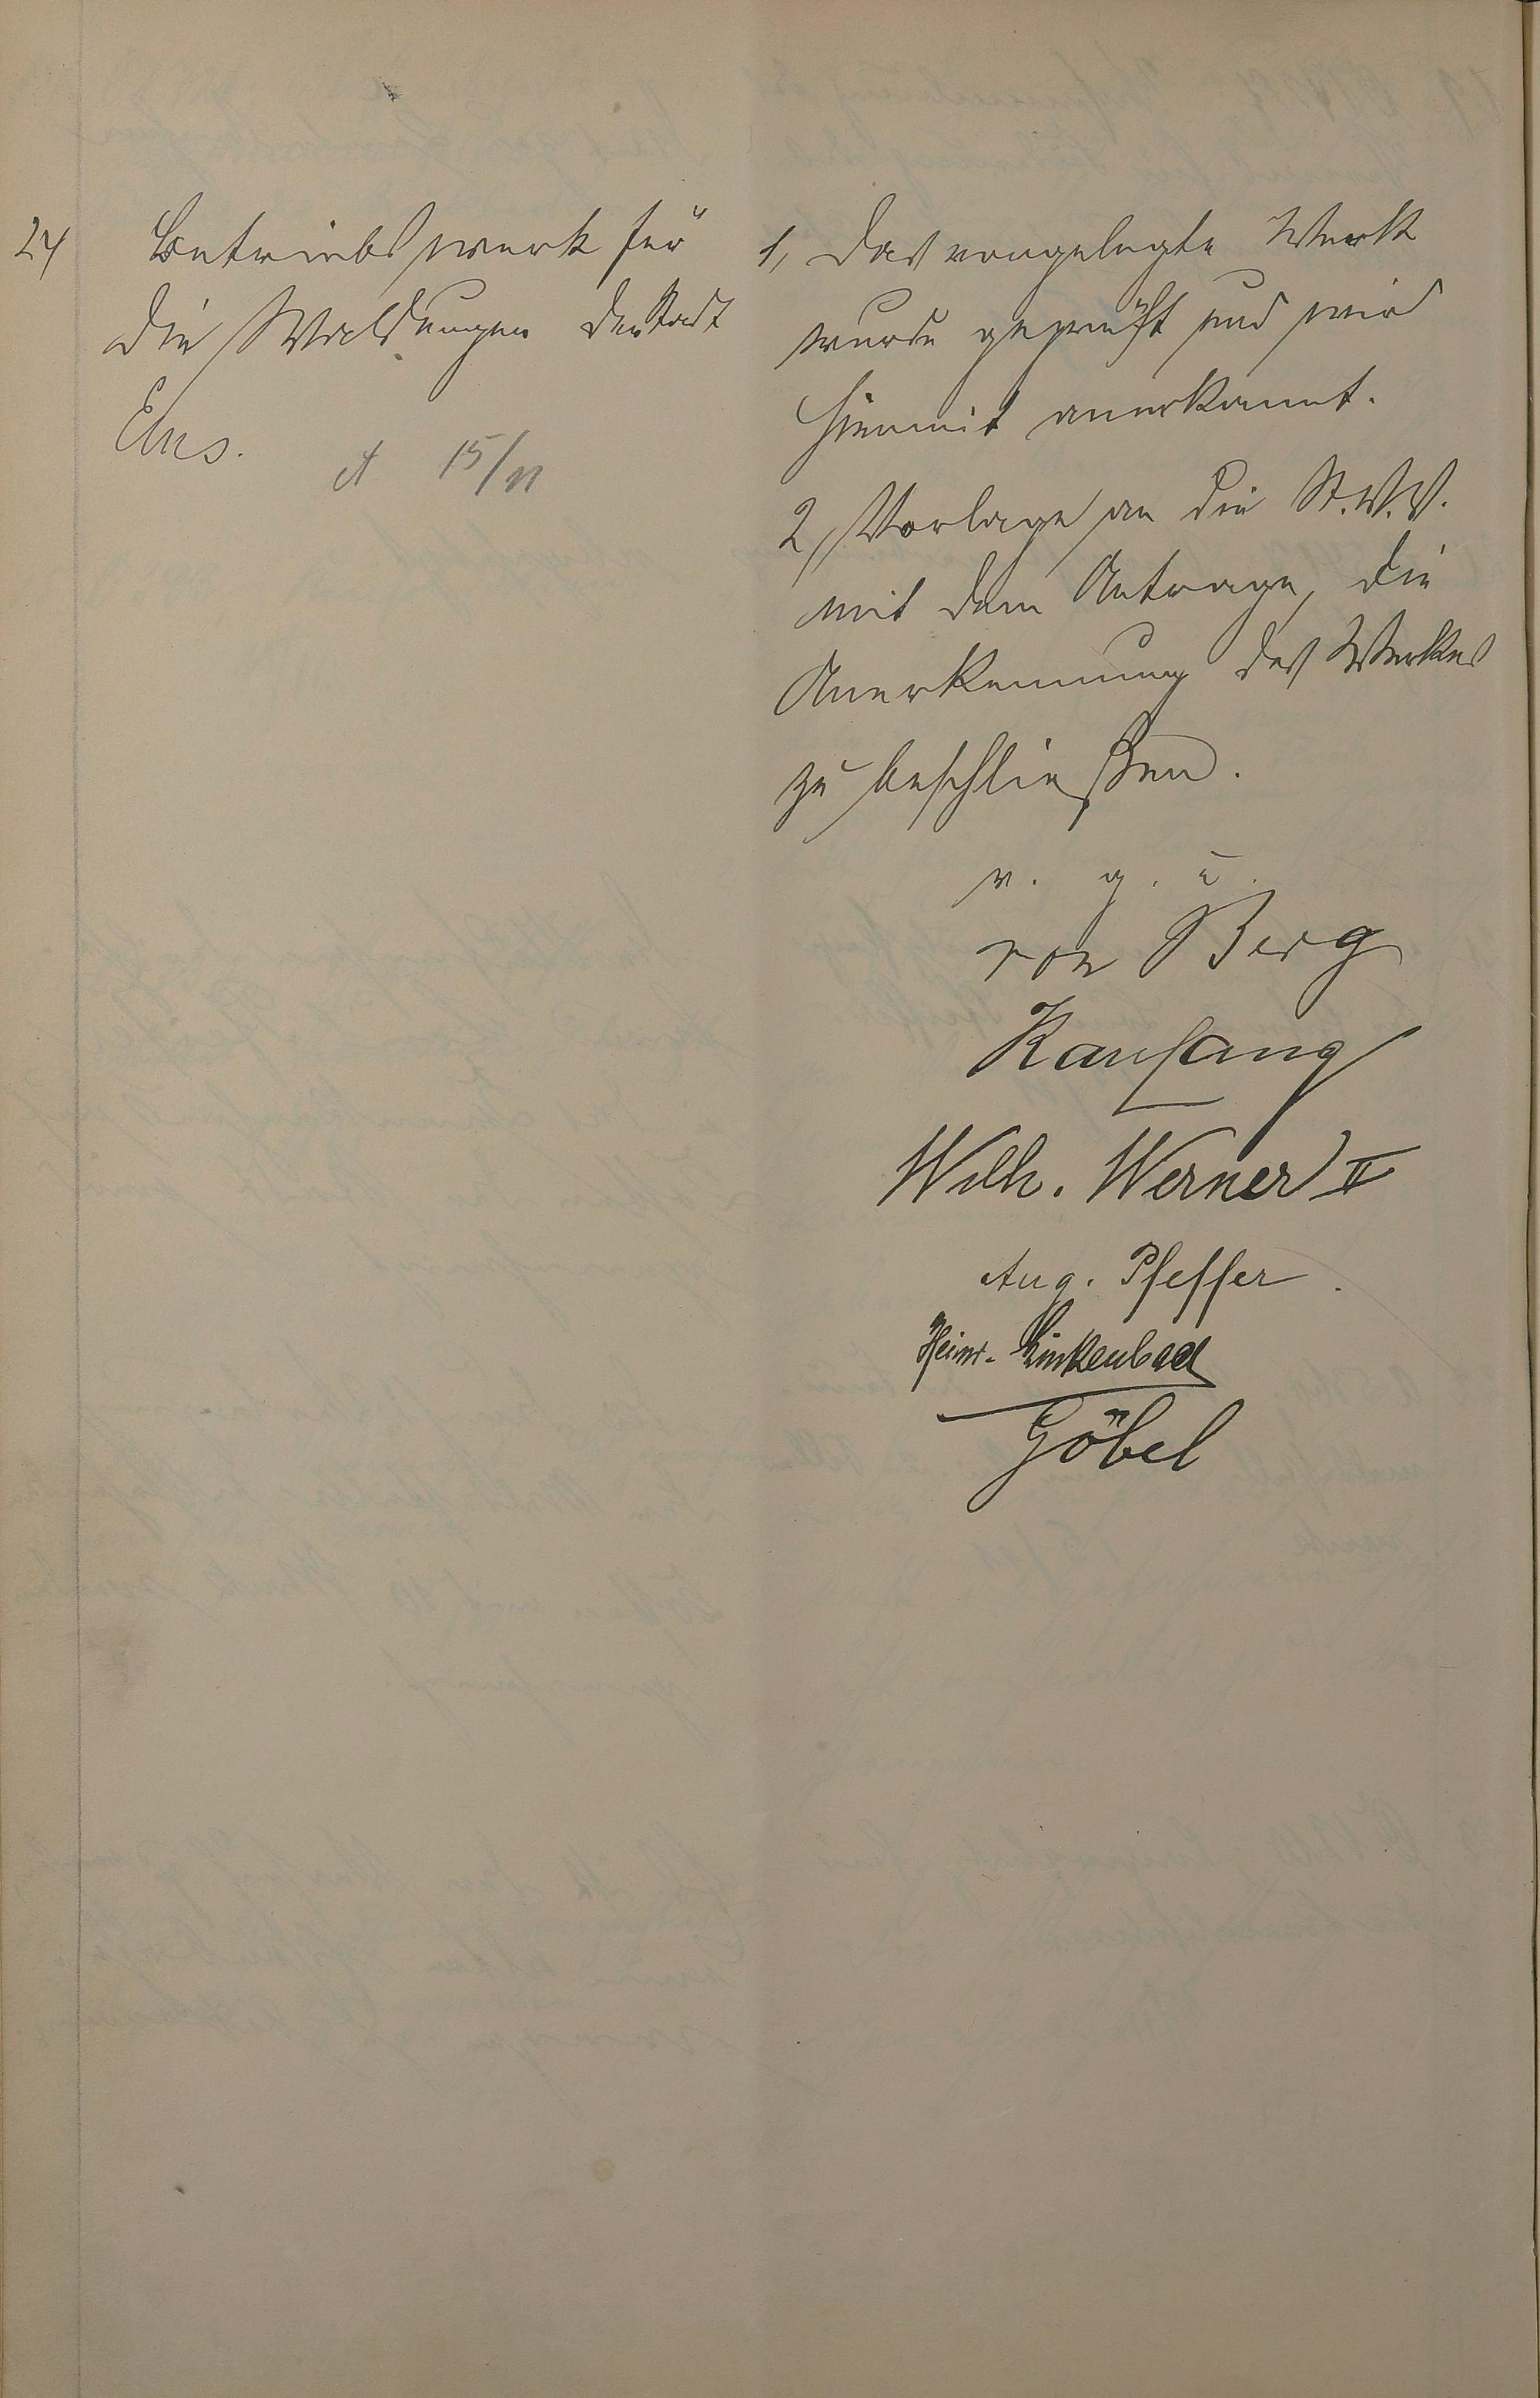 24
Betriebswerk für
die Waldungen der Stadt
Ems.
A 15/11
1, Das vorgelegte Werk
wurde geprüft und wird
hiermit anerkannt.
2, Vorlage an die St.V.V.
mit dem Antrage, die
Anerkennung des Werkes
zu beschließen.
v. g. u.
von Berg
Kaufang
Wilh. Werner II
Aug. Pfeffer.
Heinr. Linkenbach
Göbel